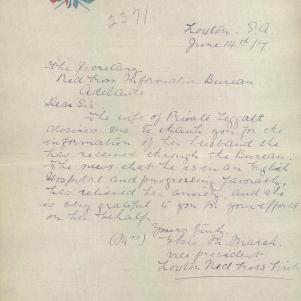 2371
Loxton. S.A
June 14th/17
The Secretary
Red Cross Information Bureau
Adelaide.
Dear Sir
The wife of Private Leggatt
desires me to thank you for the
information of her husband she
has received through the Bureau.
The news that he is in an English
Hospital and progressing favorably,
has relieved her anxiety and she
is very grateful to you for your efforts
on her behalf.
Yours truly
(Mrs) Elsie M. Marsh.
vice president
Loxton Red Cross Circle